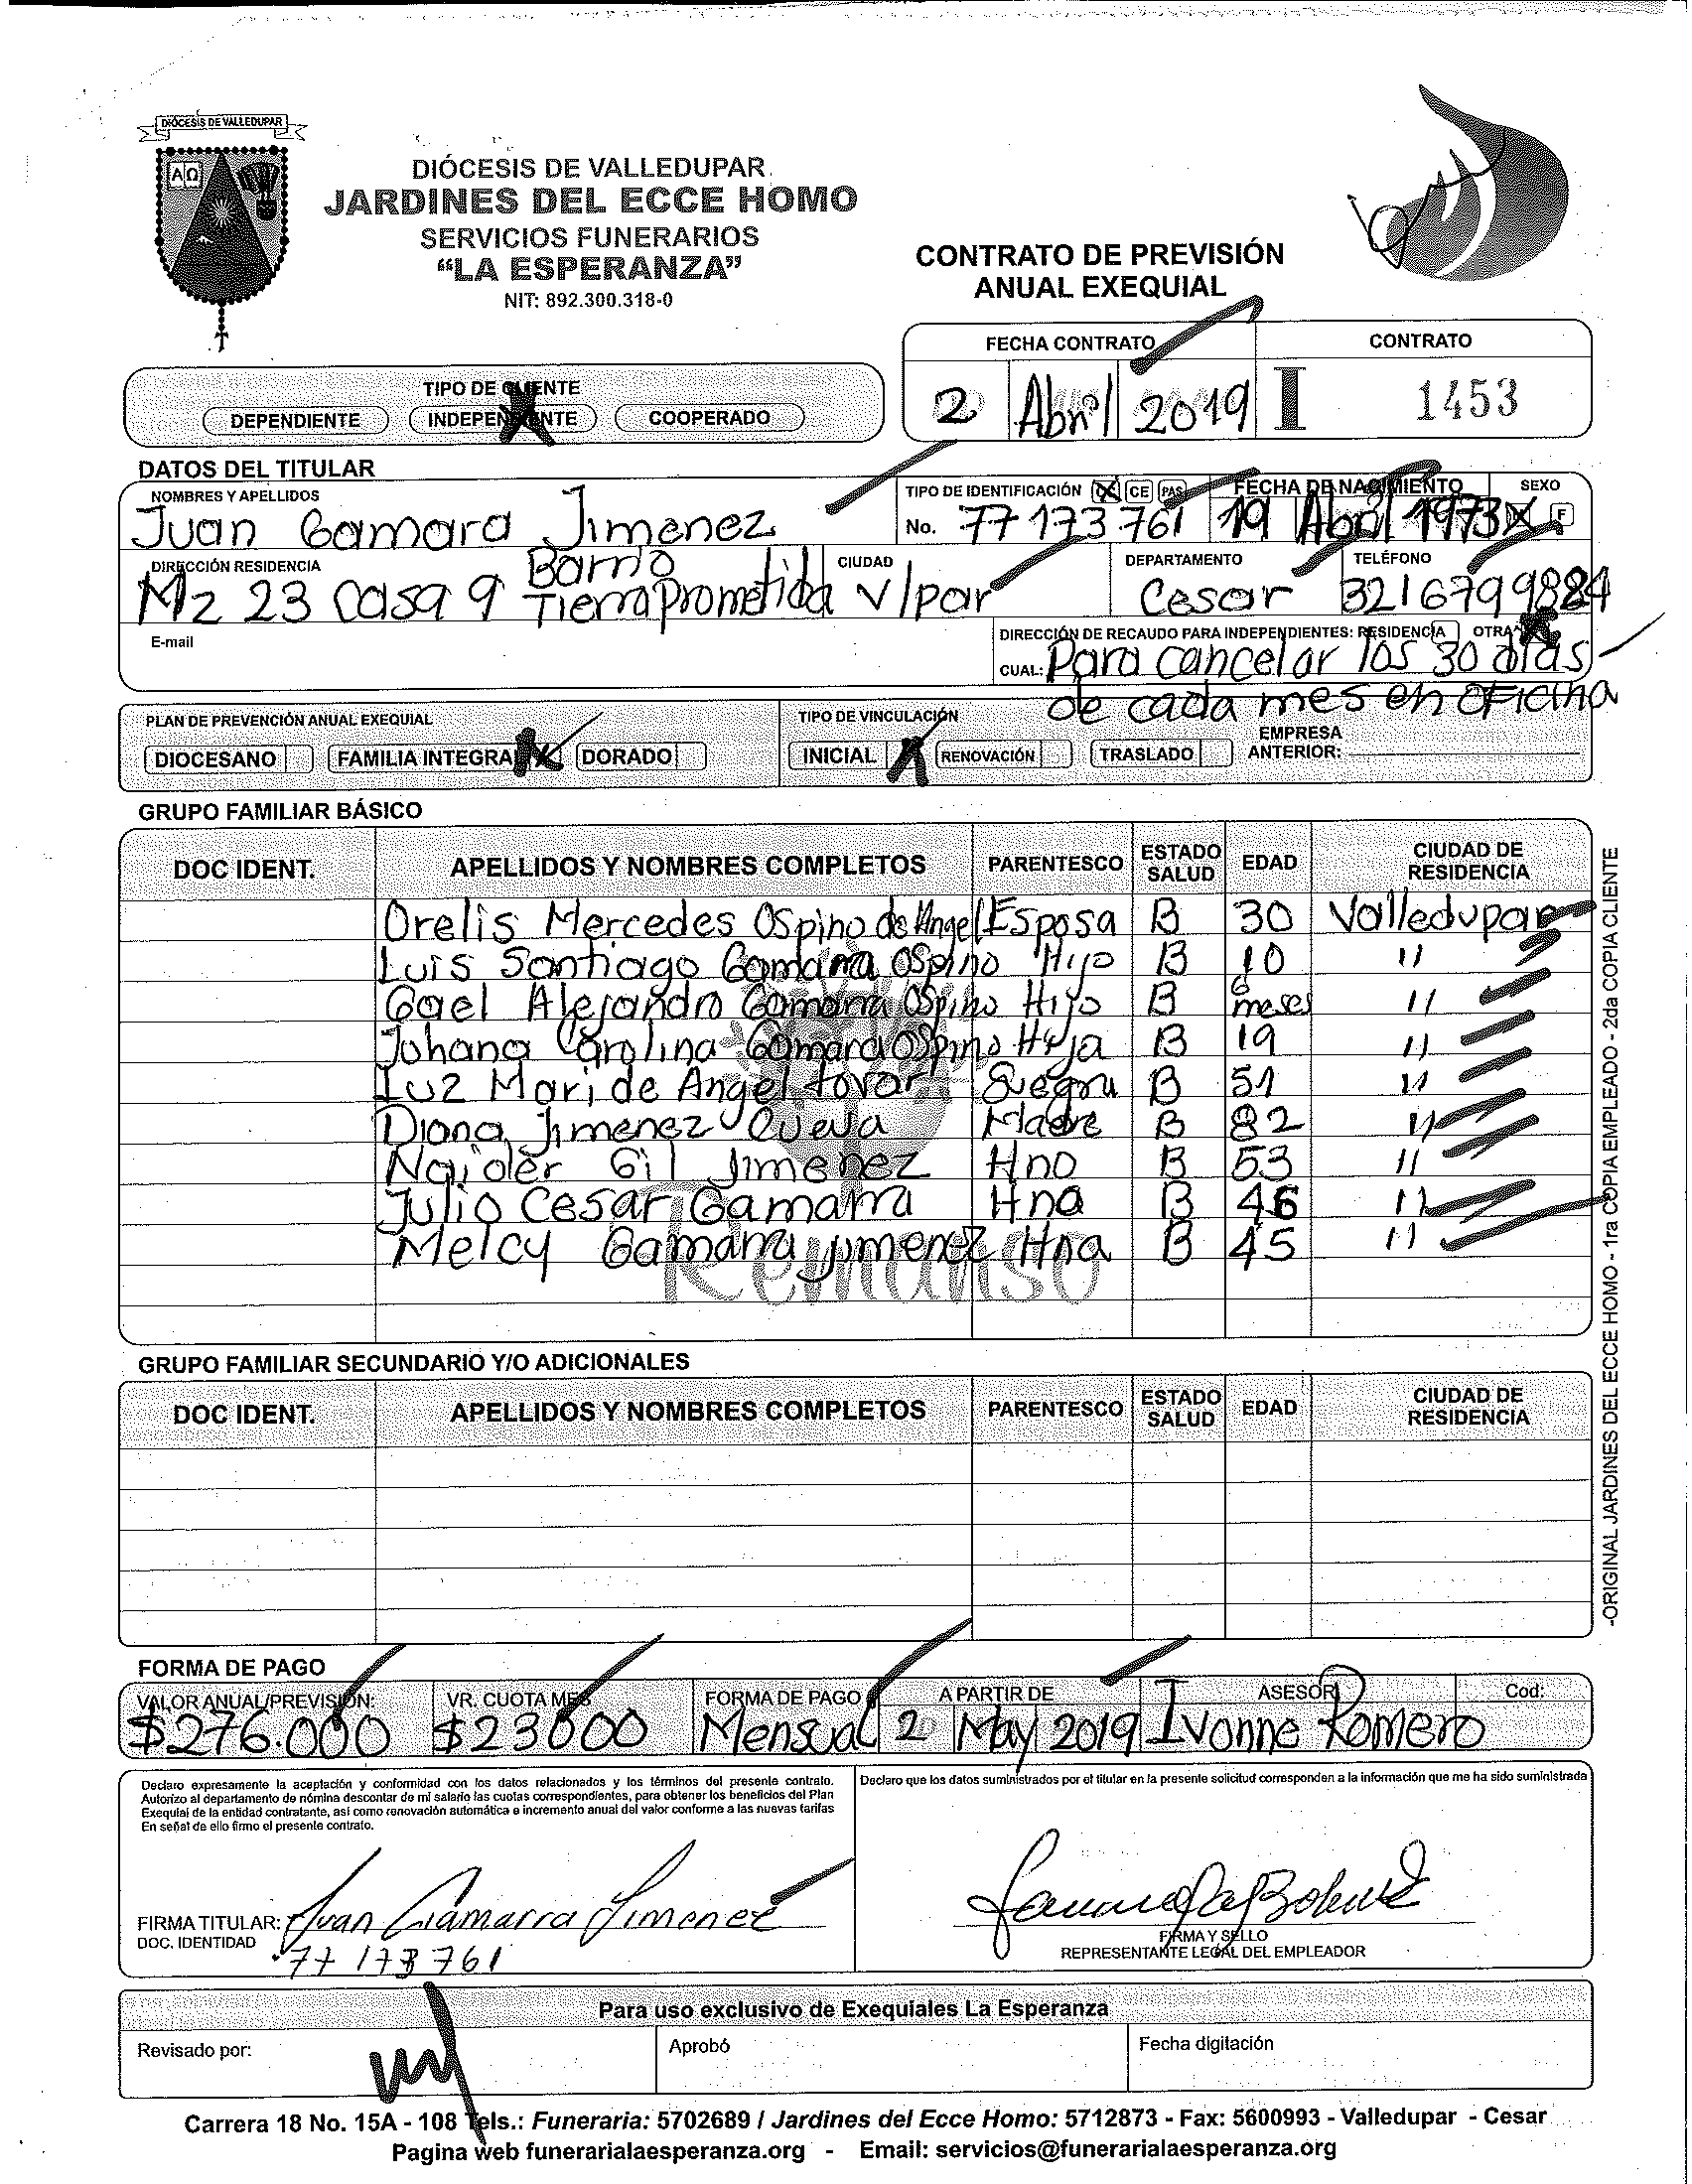 DIÓCESIS DE VALLEDUPAR
ΑΩ
DIÓCESIS DE VALLEDUPAR
JARDINES DEL ECCE HOMO
SERVICIOS FUNERARIOS
“LA ESPERANZA”
NIT: 892.300.318-0
CONTRATO DE PREVISIÓN
ANUAL EXEQUIAL
FECHA CONTRATO CONTRATO
2 Abril 2019 I 1453
TIPO DE CLIENTE
DEPENDIENTE INDEPENDIENTE COOPERADO
DATOS DEL TITULAR
NOMBRES Y APELLIDOS TIPO DE IDENTIFICACIÓN CE PAS FECHA DE NACIMIENTO SEXO
Juan Gamara Jimenez No. 77173761 19 Abril 1973 F
DIRECCIÓN RESIDENCIA CIUDAD DEPARTAMENTO TELÉFONO
Mz 23 casa 9 Barrio Tierra Prometida V/par Cesar 3216799884
E-mail DIRECCIÓN DE RECAUDO PARA INDEPENDIENTES: RESIDENCIA OTRA
CUAL: Para cancelar los 30 dias
de cada mes en oficina
PLAN DE PREVENCIÓN ANUAL EXEQUIAL TIPO DE VINCULACIÓN
DIOCESANO FAMILIA INTEGRAL DORADO INICIAL RENOVACIÓN TRASLADO EMPRESA ANTERIOR:
GRUPO FAMILIAR BÁSICO
DOC IDENT. APELLIDOS Y NOMBRES COMPLETOS PARENTESCO ESTADO SALUD EDAD CIUDAD DE RESIDENCIA
Orelis Mercedes Ospino de Angel Esposa B 30 Valledupar
Luis Santiago Gamarra Ospino Hijo B 10 "
Gael Alejandro Gamarra Ospino Hijo B 6 meses "
Johana Carolina Gamara Ospino Hija B 19 "
Luz Mari de Angel tovar Suegra B 51 "
Diana Jimenez Cueva Madre B 82 "
Naider Gil Jimenez Hno B 53 "
Julio Cesar Gamarra Hno B 46 "
Melcy Gamarra jimenez Hna B 45 "
Remanso
GRUPO FAMILIAR SECUNDARIO Y/O ADICIONALES
DOC IDENT. APELLIDOS Y NOMBRES COMPLETOS PARENTESCO ESTADO SALUD EDAD CIUDAD DE RESIDENCIA
-ORIGINAL JARDINES DEL ECCE HOMO - 1ra COPIA EMPLEADO - 2da COPIA CLIENTE
FORMA DE PAGO
VALOR ANUAL/PREVISIÓN: VR. CUOTA MES FORMA DE PAGO A PARTIR DE ASESOR Cod:
$276.000 $23000 Mensual 2 May 2019 Ivonne Romero
Declaro expresamente la aceptación y conformidad con los datos relacionados y los términos del presente contrato.
Autorizo al departamento de nómina descontar de mi salario las cuotas correspondientes, para obtener los beneficios del Plan
Exequial de la entidad contratante, así como renovación automática e incremento anual del valor conforme a las nuevas tarifas
En señal de ello firmo el presente contrato.
Declaro que los datos suministrados por el titular en la presente solicitud corresponden a la información que me ha sido suministrada
FIRMA TITULAR: Juan Gamarra Jimenez
DOC. IDENTIDAD 77 173 761
FIRMA Y SELLO
REPRESENTANTE LEGAL DEL EMPLEADOR
Para uso exclusivo de Exequiales La Esperanza
Revisado por: Aprobó Fecha digitación
Carrera 18 No. 15A - 108 Tels.: Funeraria: 5702689 / Jardines del Ecce Homo: 5712873 - Fax: 5600993 - Valledupar - Cesar
Pagina web funerarialaesperanza.org - Email: servicios@funerarialaesperanza.org